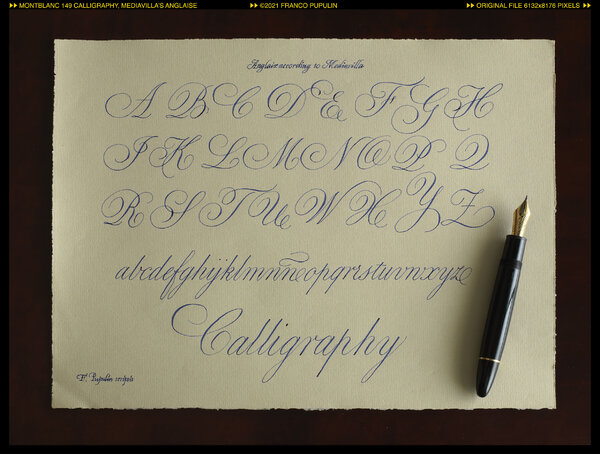 MONTBLANC 149 CALLIGRAPHY, MEDIAVILLA'S ANGLAISE
©2021 FRANCO PUPULIN
ORIGINAL FILE 6132x8176 PIXELS
Anglaise according to Mediavilla
A B C D E F G H
I K L M N O P Q
R S T U W X Y Z
abcdefghijklmnñeopqrrstuvnxyz
Calligraphy
F. Pupulin scripsit